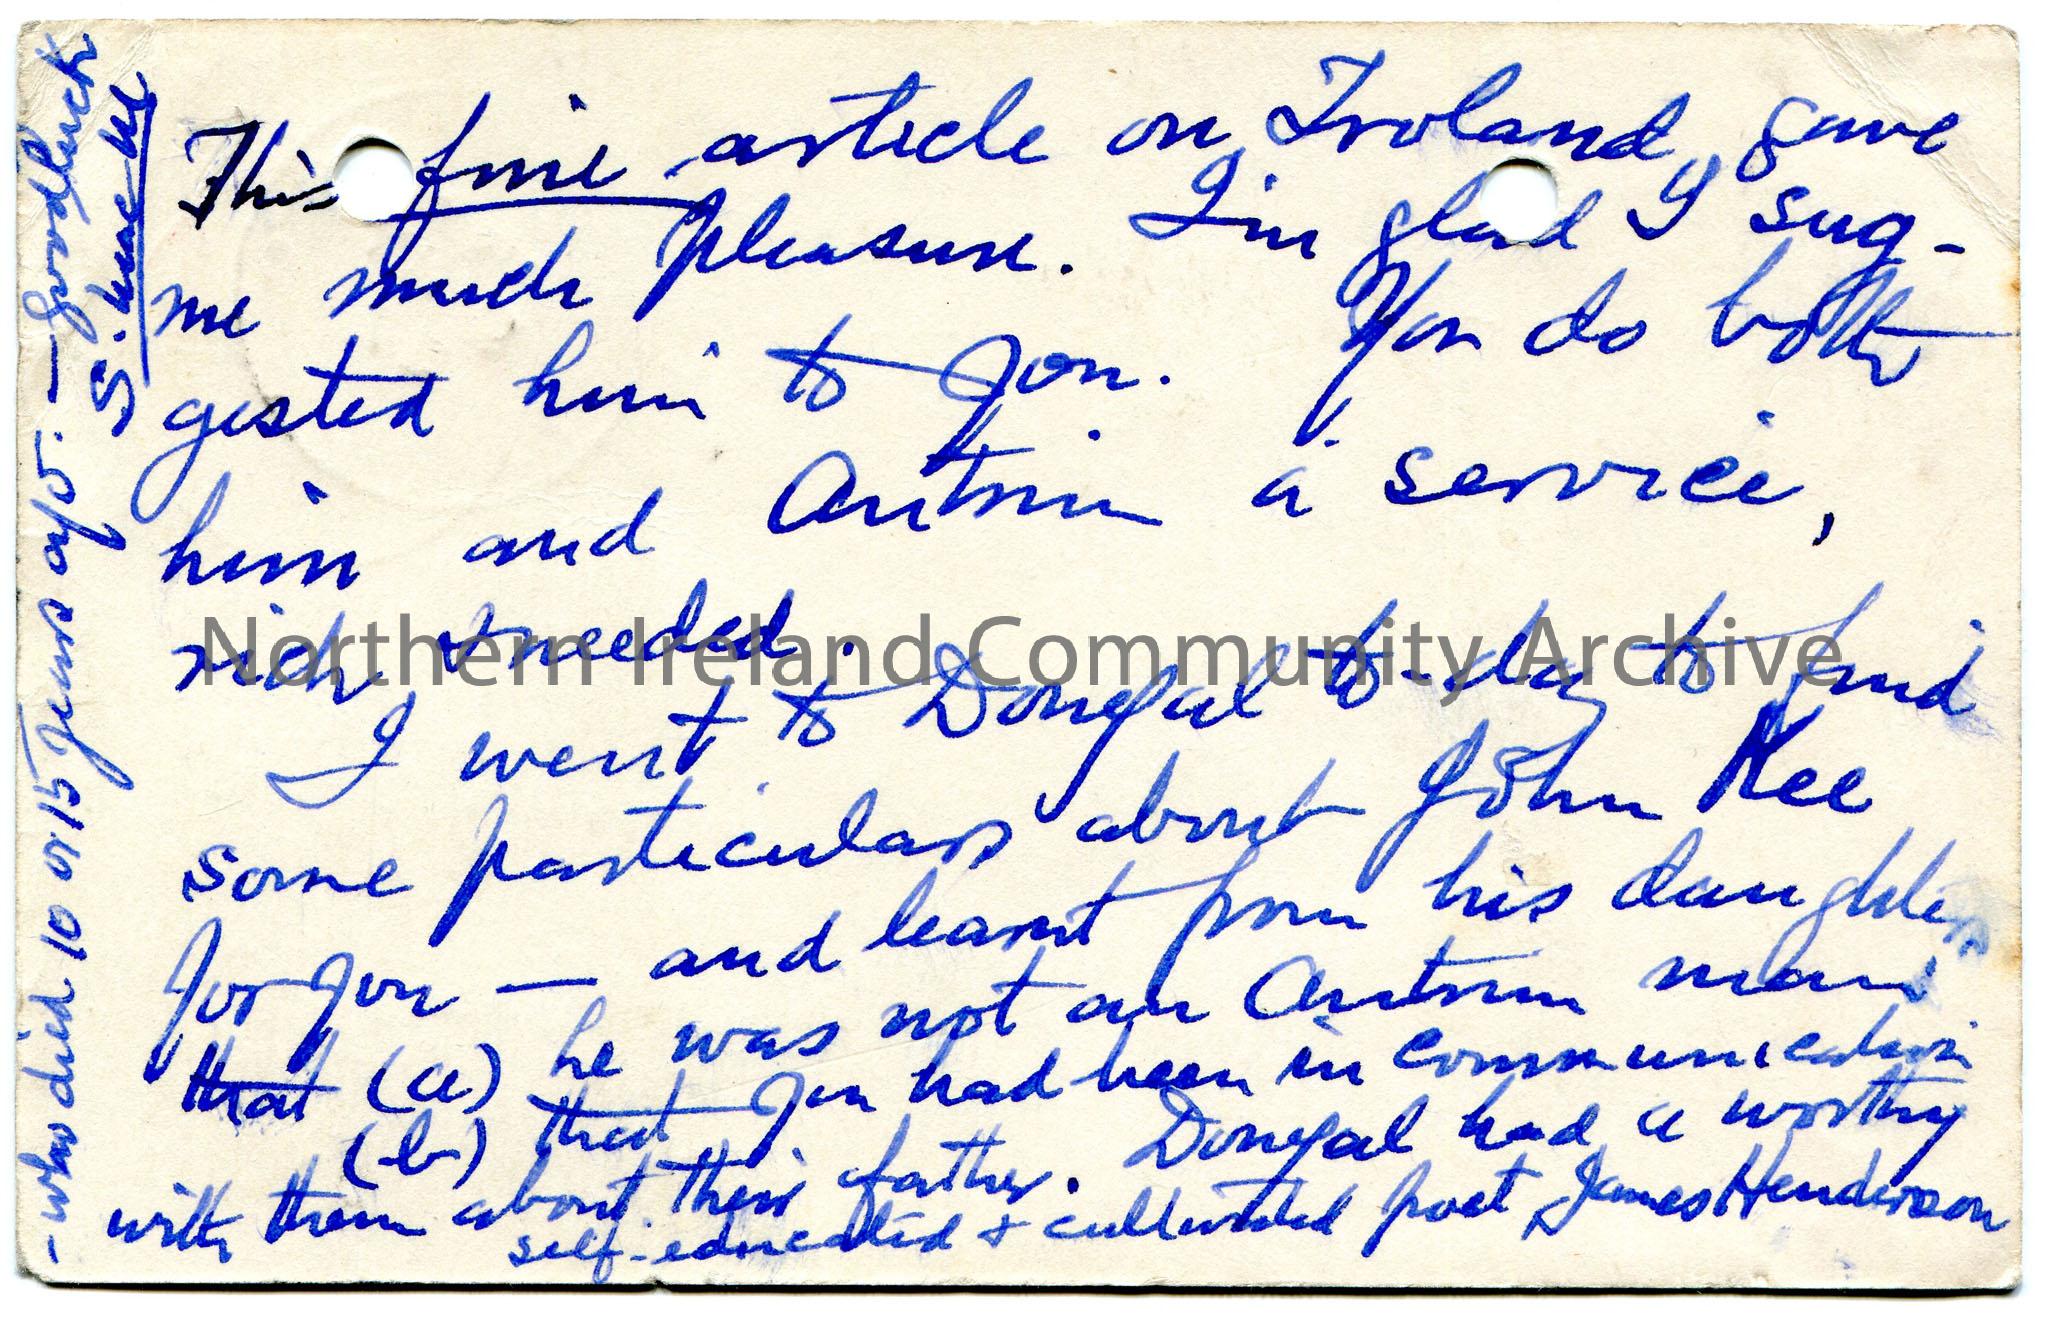 This fine article on Troland, gave
me much pleasure. I'm glad I sug-
gested him to you. You do both
him and Antrim a service,
rich, & needed.
I went to Donegal to-day to find
some particulars about John Kee
for you — and learnt from his daughters
that (a) he was not an Antrim man
(b) that you had been in communication
with them about their father. Donegal had a worthy
self-educated & cultivated poet, James Henderson
- who died 10 or 15 years ago. — Good luck
S.
Northern Ireland Community Archive